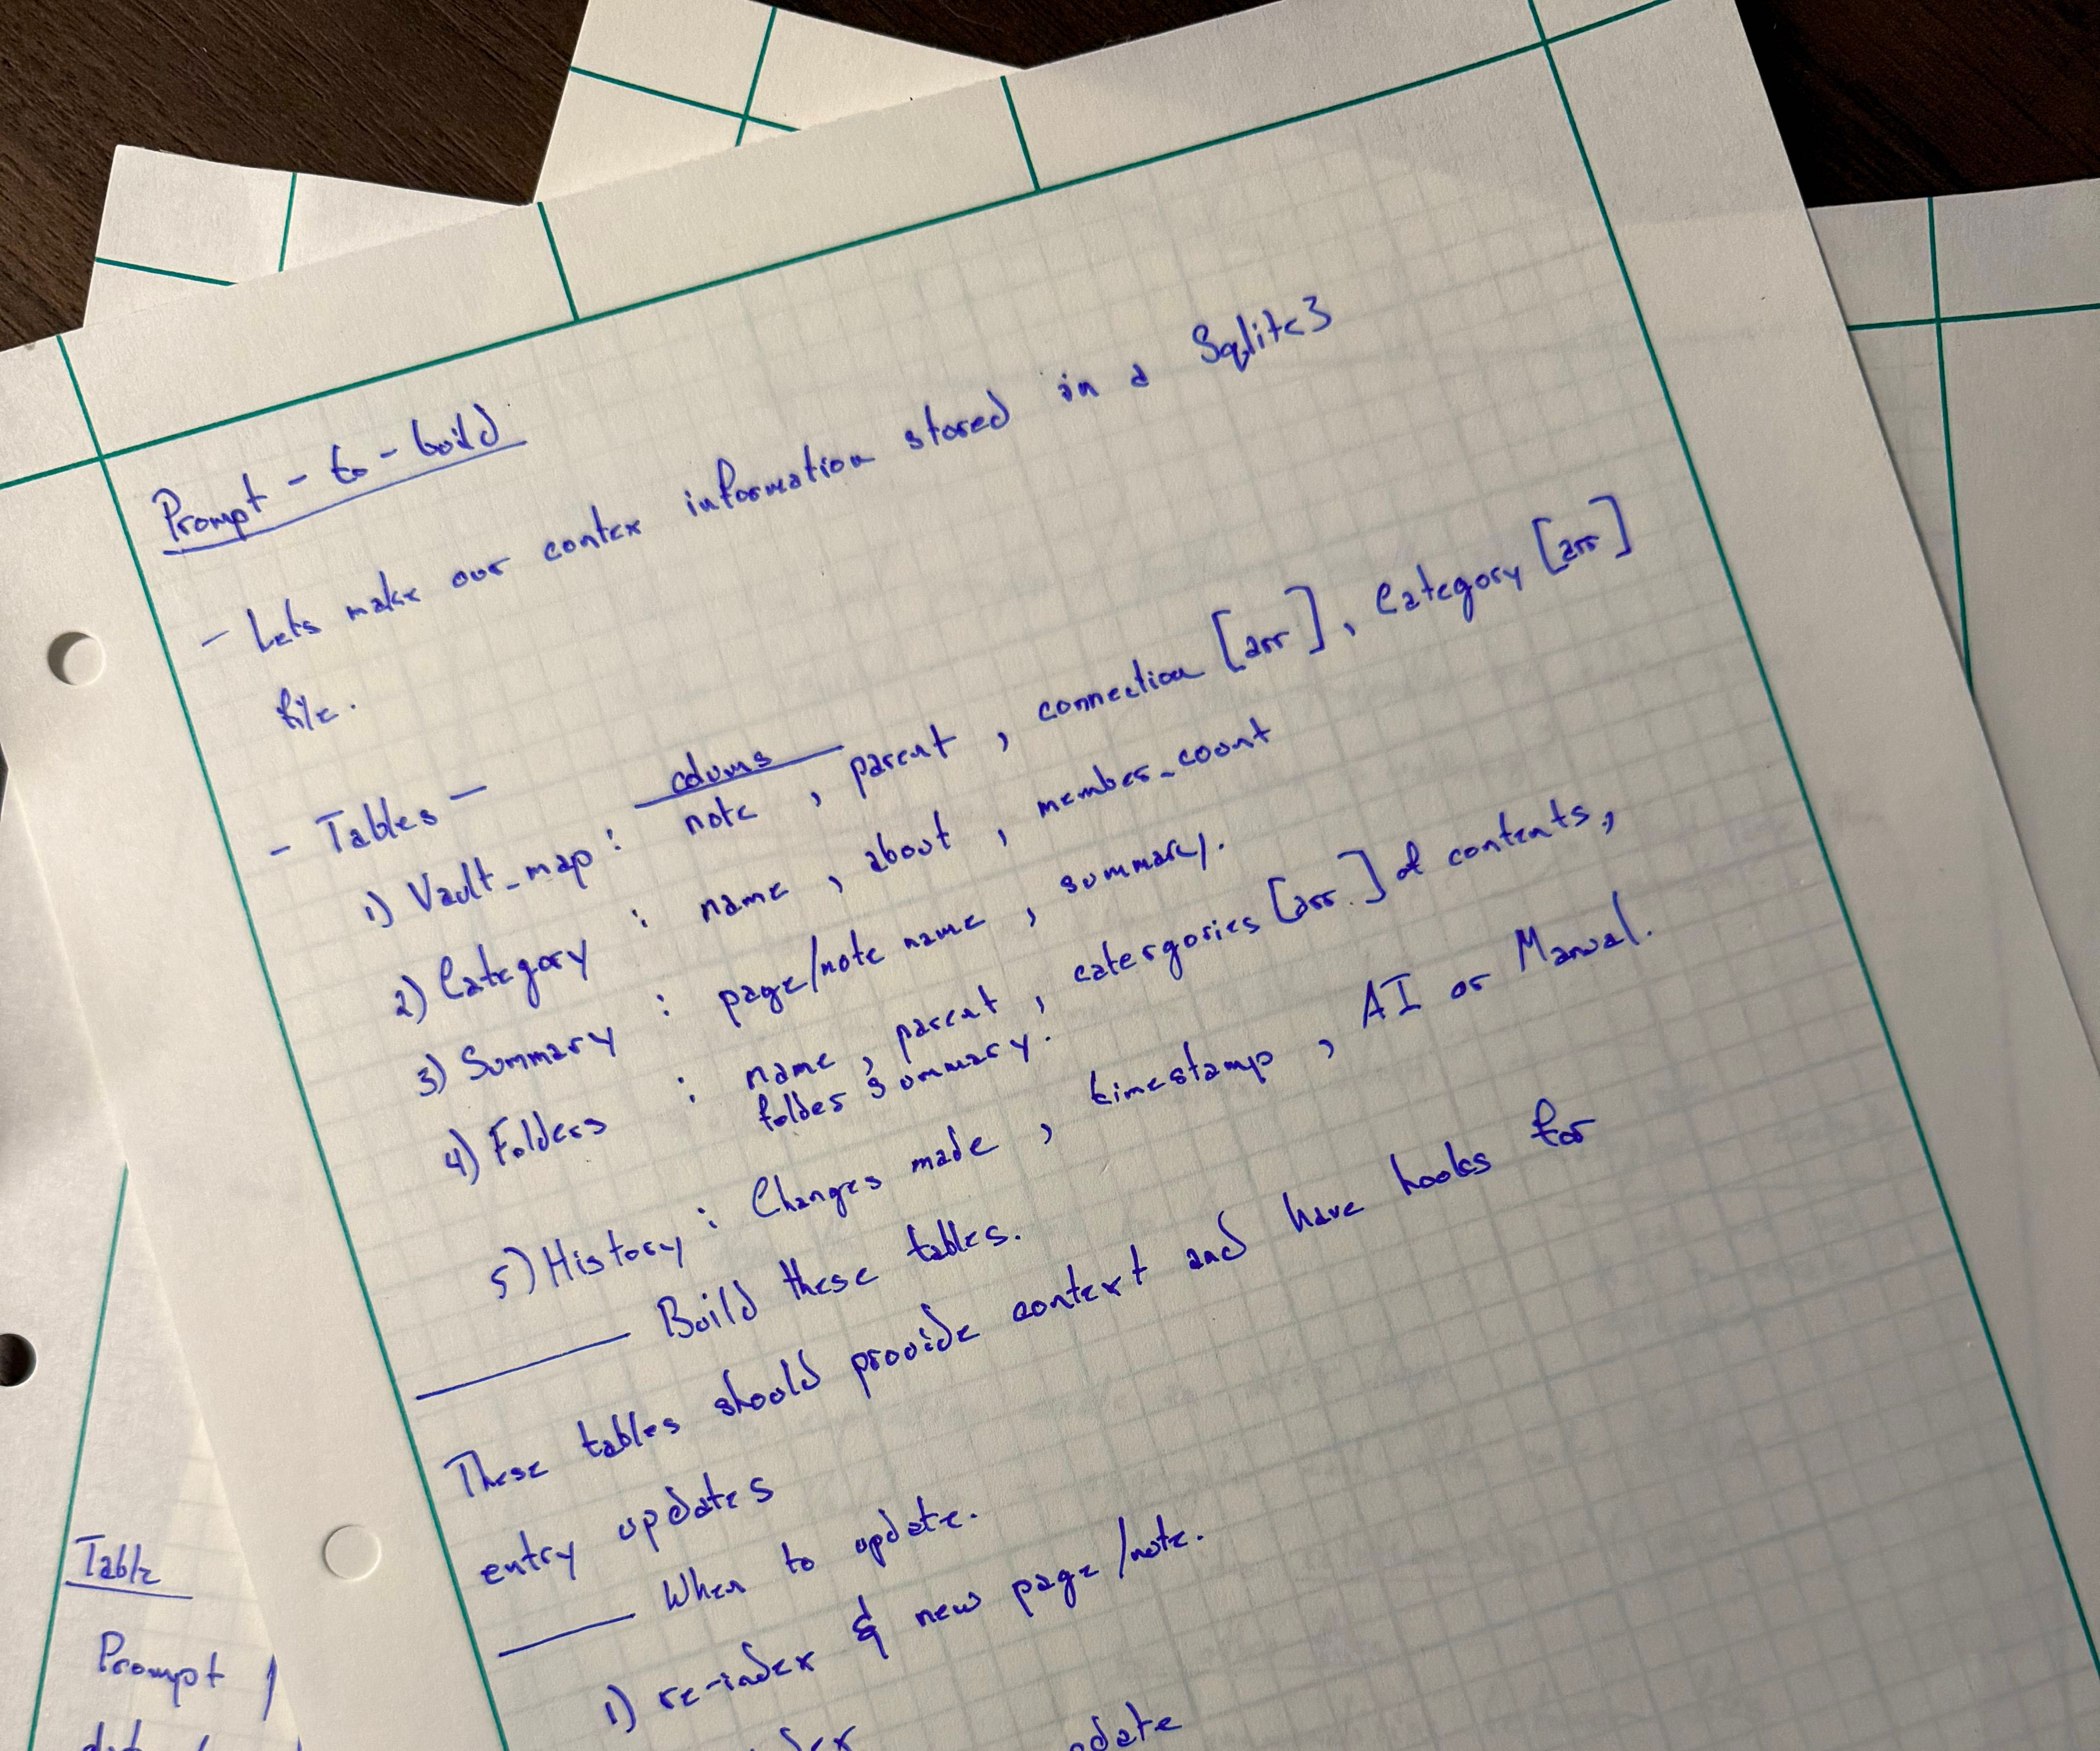 Prompt - to - build
- Lets make our contex information stored in a Sqlite3
file.
- Tables -
colums
1) Vault_map : note , parent , connection [arr] , Category [arr]
2) Category : name , about , member_count
3) Summary : page/note name , summary.
4) Folders : name , parent , catergories [arr.] of contents,
folder summary.
5) History : Changes made , timestamp , AI or Manual.
Build these tables.
These tables should provide context and have hooks for
entry updates
When to update.
1) re-index & new page/note.
Table
Prompt